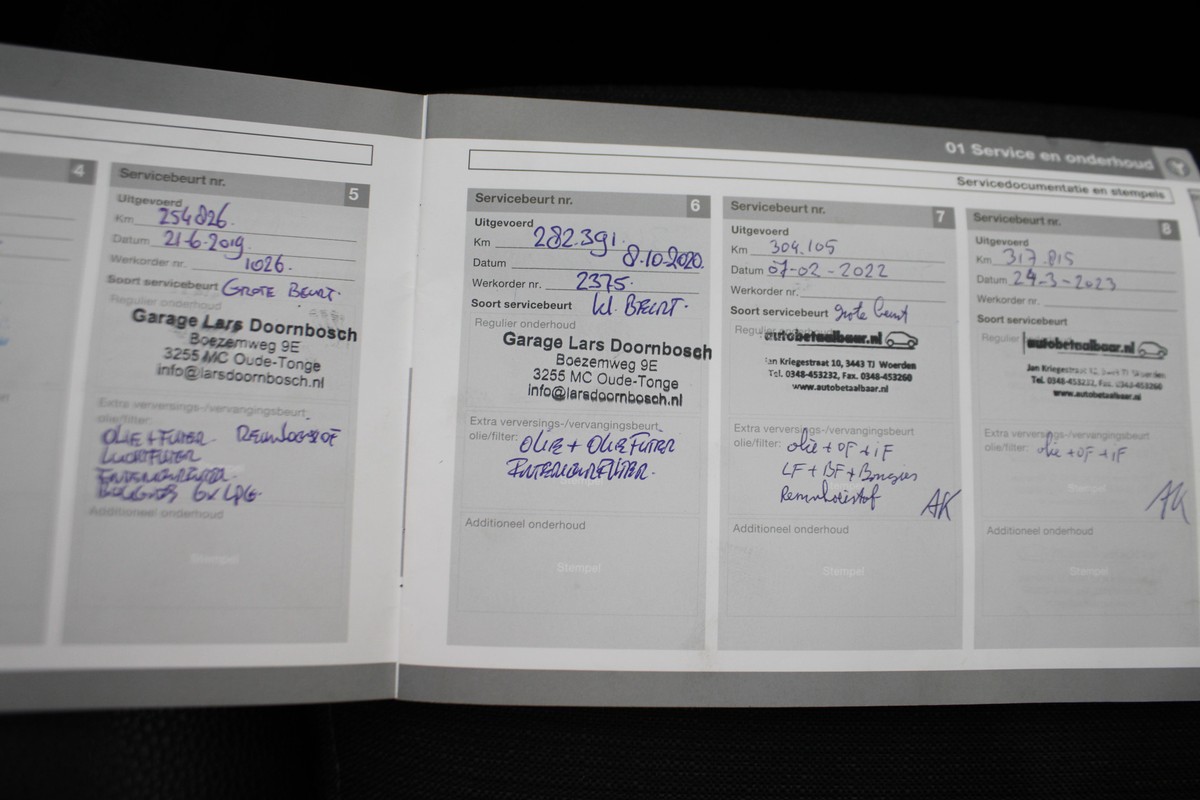 01 Service en onderhoud
Servicedocumentatie en stempels
4
Servicebeurt nr. 5
Uitgevoerd
Km 254826.
Datum 21-6-2019
Werkorder nr. 1026.
Soort servicebeurt GROTE BEURT.
Regulier onderhoud
Garage Lars Doornbosch
Boezemweg 9E
3255 MC Oude-Tonge
info@larsdoornbosch.nl
Extra verversings-/vervangingsbeurt
olie/filter:
OLIE + FILTER. REMVLOEISTOF
LUCHTFILTER
INTERIEURFILTER.
BOUGIES 6x LPG.
Additioneel onderhoud
Stempel
Servicebeurt nr. 6
Uitgevoerd
Km 282.391.
Datum 8.10.2020.
Werkorder nr. 2375.
Soort servicebeurt Kl. BEURT.
Regulier onderhoud
Garage Lars Doornbosch
Boezemweg 9E
3255 MC Oude-Tonge
info@larsdoornbosch.nl
Extra verversings-/vervangingsbeurt
olie/filter: OLIE + OLIEFILTER
INTERIEURFILTER.
Additioneel onderhoud
Stempel
Servicebeurt nr. 7
Uitgevoerd
Km 304.105
Datum 07-02-2022
Werkorder nr.
Soort servicebeurt grote beurt
Regulier onderhoud
autobetaalbaar.nl
Jan Kriegestraat 10, 3443 TJ Woerden
Tel. 0348-453232, Fax. 0348-453260
www.autobetaalbaar.nl
Extra verversings-/vervangingsbeurt
olie/filter: olie + OF + iF
LF + BF + Bougies
Remvloeistof AK
Additioneel onderhoud
Stempel
Servicebeurt nr. 8
Uitgevoerd
Km 317.815
Datum 24-3-2023
Werkorder nr.
Soort servicebeurt
Regulier
autobetaalbaar.nl
Jan Kriegestraat 10, 3443 TJ Woerden
Tel. 0348-453232, Fax. 0348-453260
www.autobetaalbaar.nl
Extra verversings-/vervangingsbeurt
olie/filter: olie + OF + iF
Stempel
AK
Additioneel onderhoud
Stempel